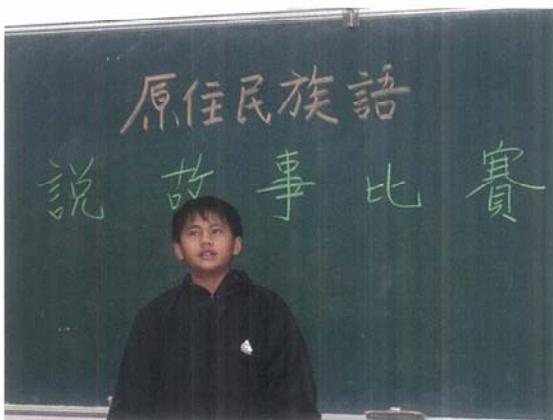 原住民族語
説故事比賽